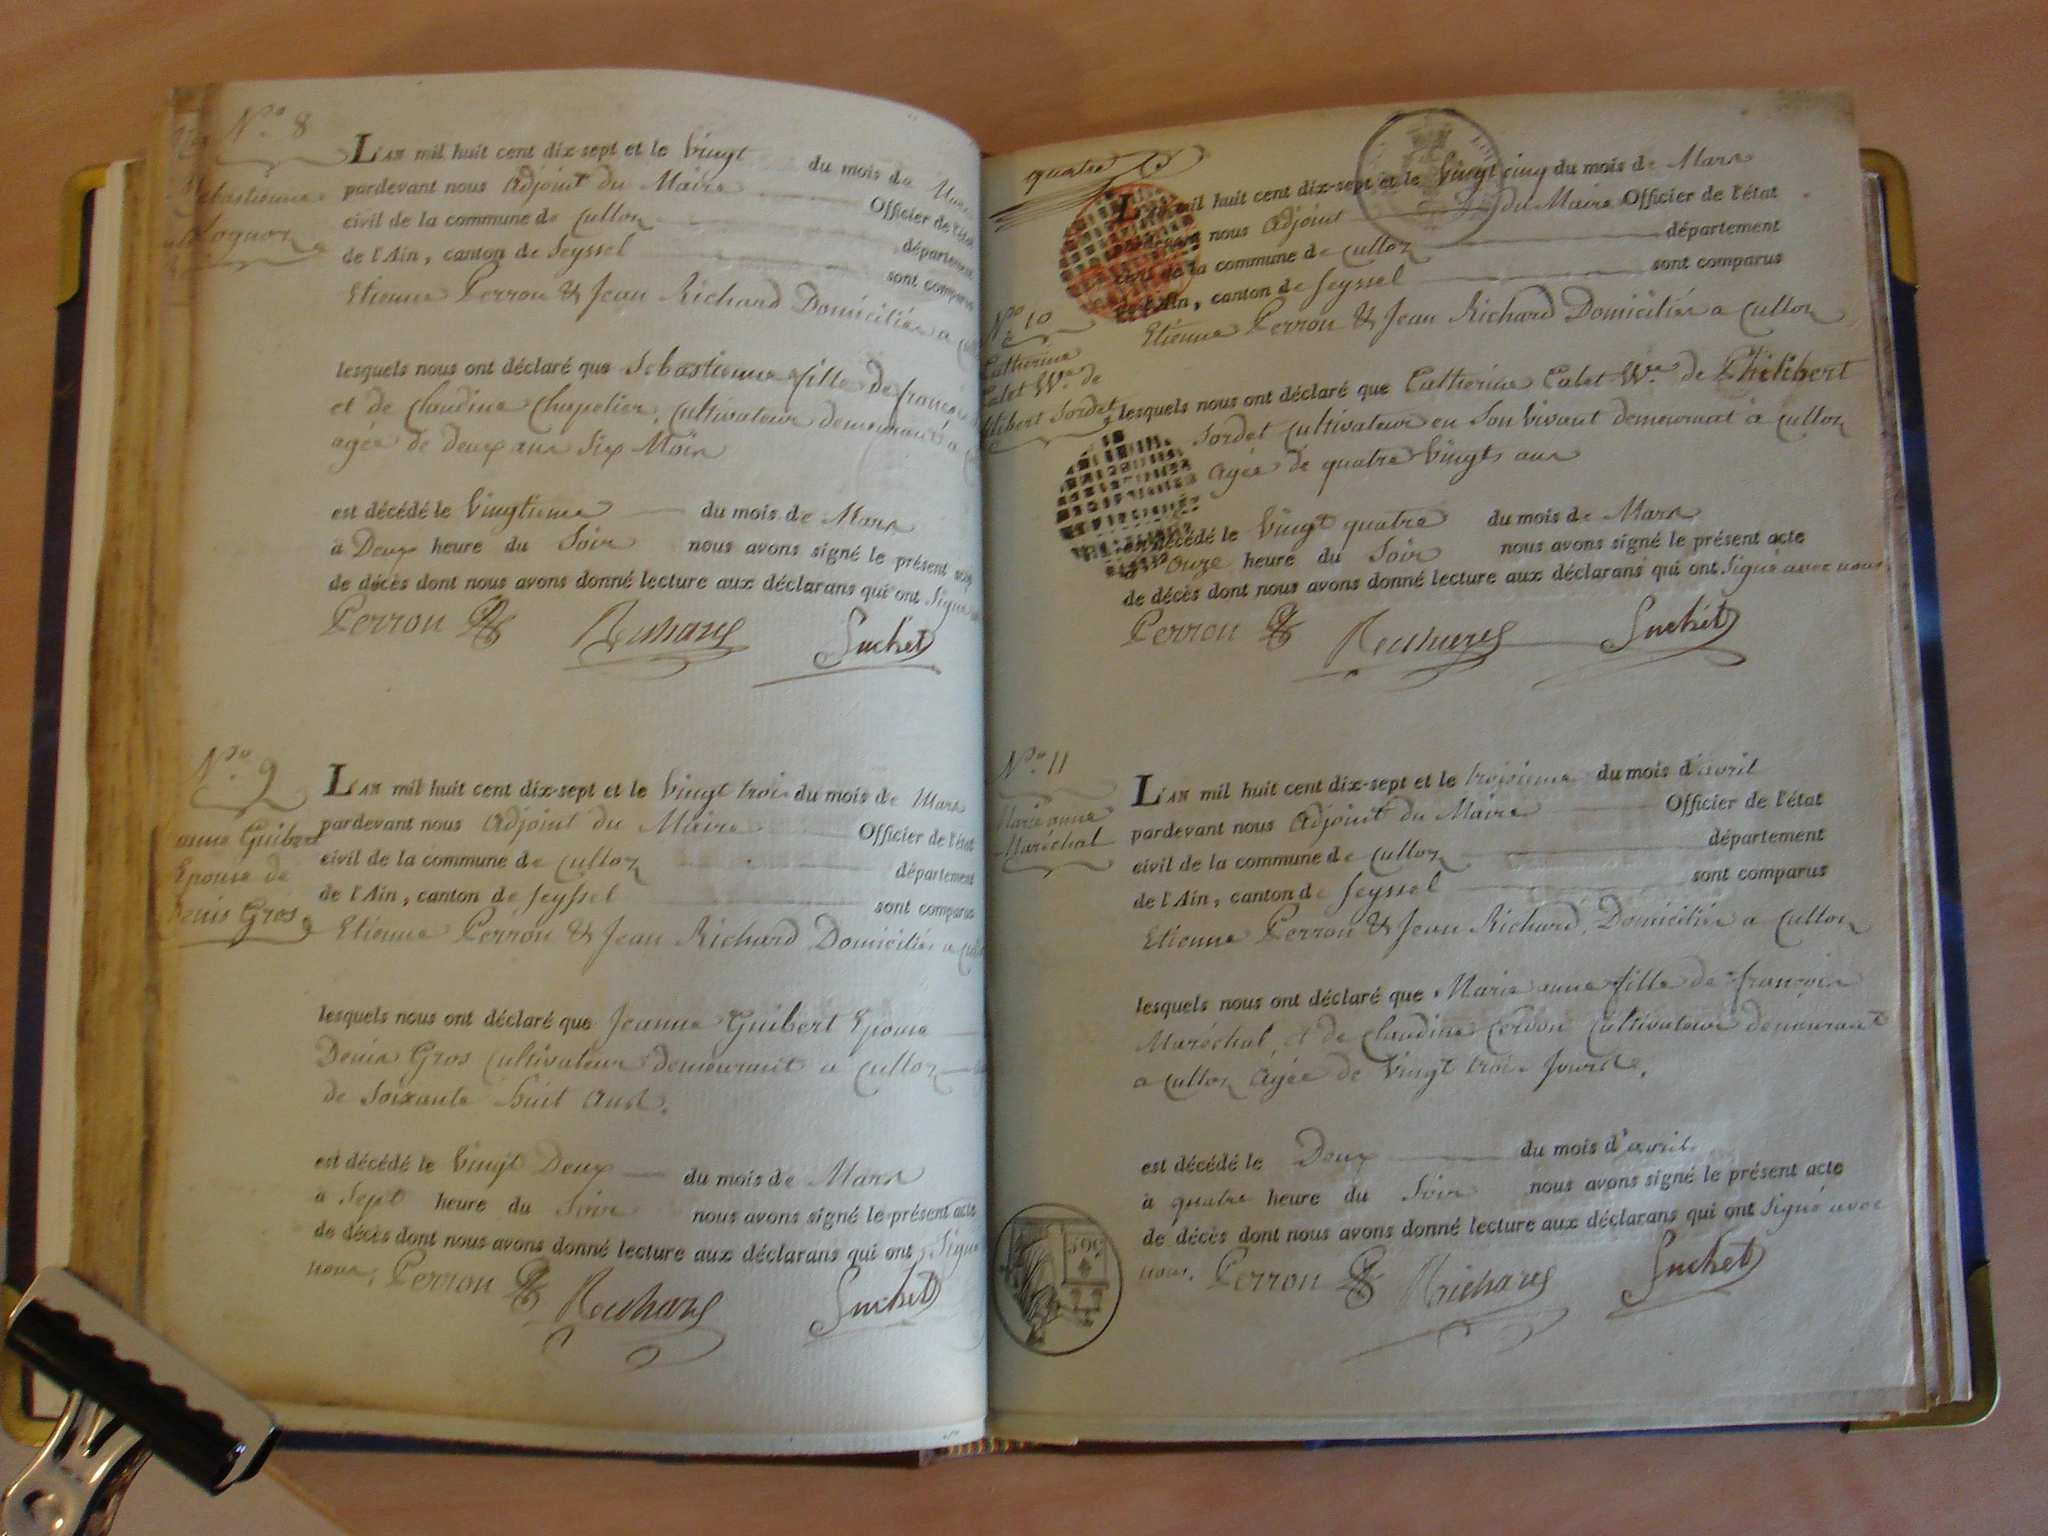 N.º 8
Sebastienne
L'AN mil huit cent dix-sept et le Vingt du mois de Mars
pardevant nous Adjoint du Maire Officier de l'état
civil de la commune de Culloz département
de l'Ain, canton de Seyssel sont comparus
Etienne Perron & Jean Richard Domiciliés a
lesquels nous ont déclaré que Sebastienne fille de françois
et de Claudine Chapelier, Cultivateur demeurant à
agée de deux ans Six Mois
est décédé le Vingtieme du mois de Mars
à Deux heure du Soir nous avons signé le présent acte
de décès dont nous avons donné lecture aux déclarans qui ont Signé
Perron Richard Suchet
N.º 9
anne Guibert
Epouse de
Denis Gros
L'AN mil huit cent dix-sept et le Vingt trois du mois de Mars
pardevant nous Adjoint du Maire Officier de l'état
civil de la commune de Culloz département
de l'Ain, canton de Seyssel sont comparus
Etienne Perron & Jean Richard Domiciliés a
lesquels nous ont déclaré que Jeanne Guibert Epouse
Denis Gros Cultivateur demeurant a Culloz
de Soixante huit ans.
est décédé le Vingt Deux du mois de Mars
à Sept heure du Soir nous avons signé le présent acte
de décès dont nous avons donné lecture aux déclarans qui ont Signé
nous. Perron Richard Suchet
quatre
L'AN mil huit cent dix-sept et le Vingt cinq du mois de Mars
pardevant nous Adjoint du Maire Officier de l'état
civil de la commune de Culloz département
de l'Ain, canton de Seyssel sont comparus
N.º 10
Catherine
Calet Ve de
Philibert Sordet
Etienne Perron & Jean Richard Domiciliés a Culloz
lesquels nous ont déclaré que Catherine Calet Ve de Philibert
Sordet Cultivateur en Son Vivant demeurant à Culloz
agée de quatre Vingts ans
est décédé le Vingt quatre du mois de Mars
à onze heure du Soir nous avons signé le présent acte
de décès dont nous avons donné lecture aux déclarans qui ont Signé avec nous
Perron Richard Suchet
N.º 11
Marie anne
Maréchal
L'AN mil huit cent dix-sept et le troisieme du mois d'avril
pardevant nous Adjoint du Maire Officier de l'état
civil de la commune de Culloz département
de l'Ain, canton de Seyssel sont comparus
Etienne Perron & Jean Richard, Domiciliés a Culloz
lesquels nous ont déclaré que Marie anne fille de françois
Maréchal, et de Claudine Cervon Cultivateur demeurant
a Culloz Agée de Vingt trois Jours.
est décédé le Deux du mois d'avril
à quatre heure du Soir nous avons signé le présent acte
de décès dont nous avons donné lecture aux déclarans qui ont Signé avec
nous. Perron Richard Suchet